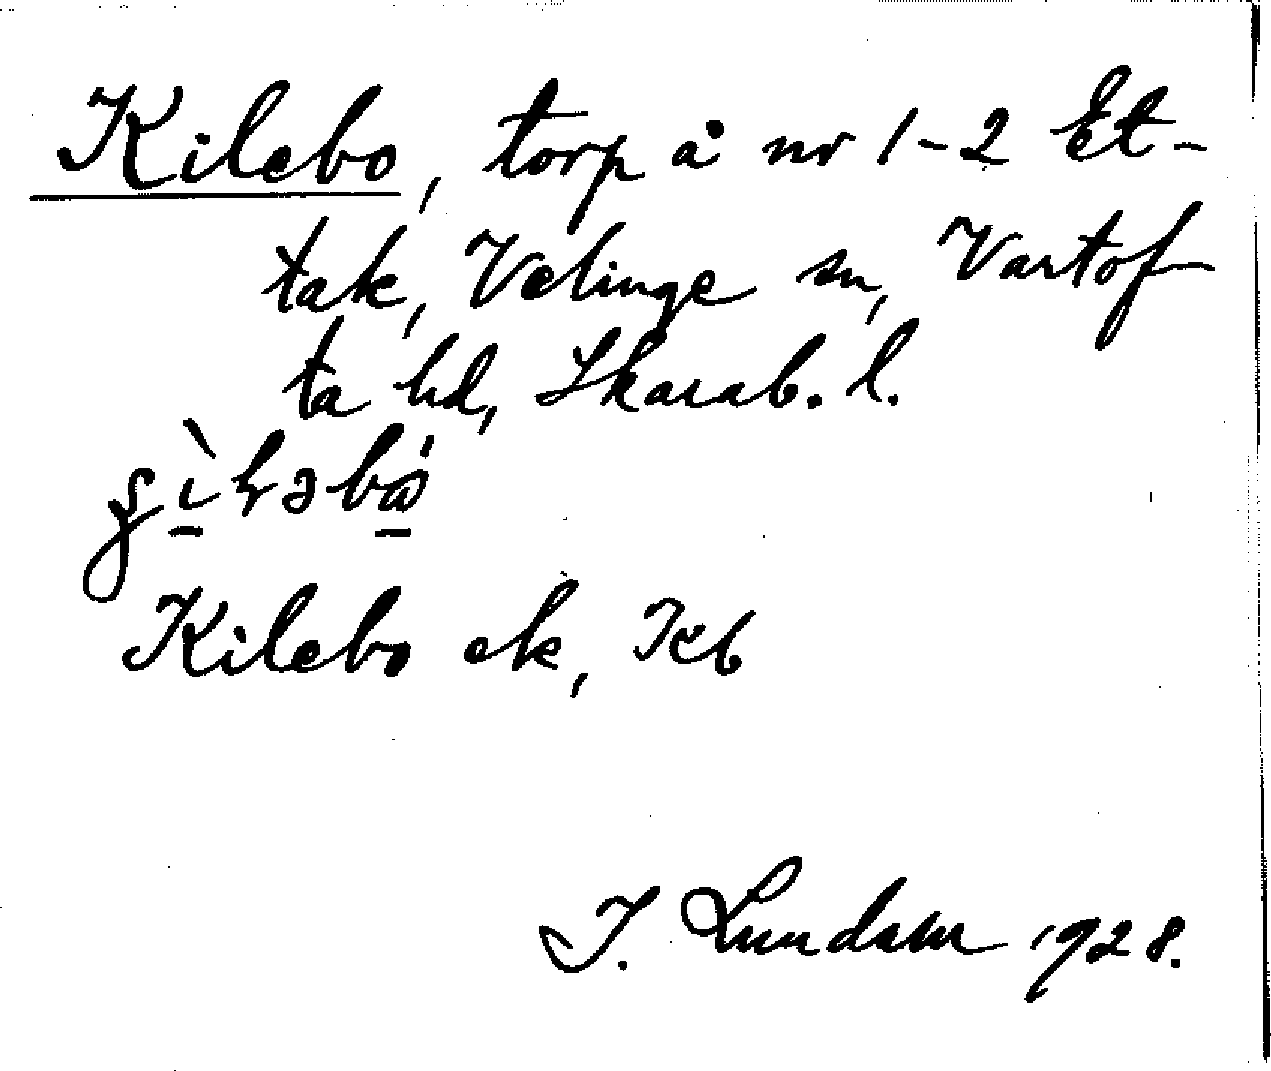 Kilebo, torp å nr 1-2 Et-
tak, Velinge sn, Vartof-
ta hd, Skarab. l.
Kilebo ek, Kb
J. Lundahl 1928.